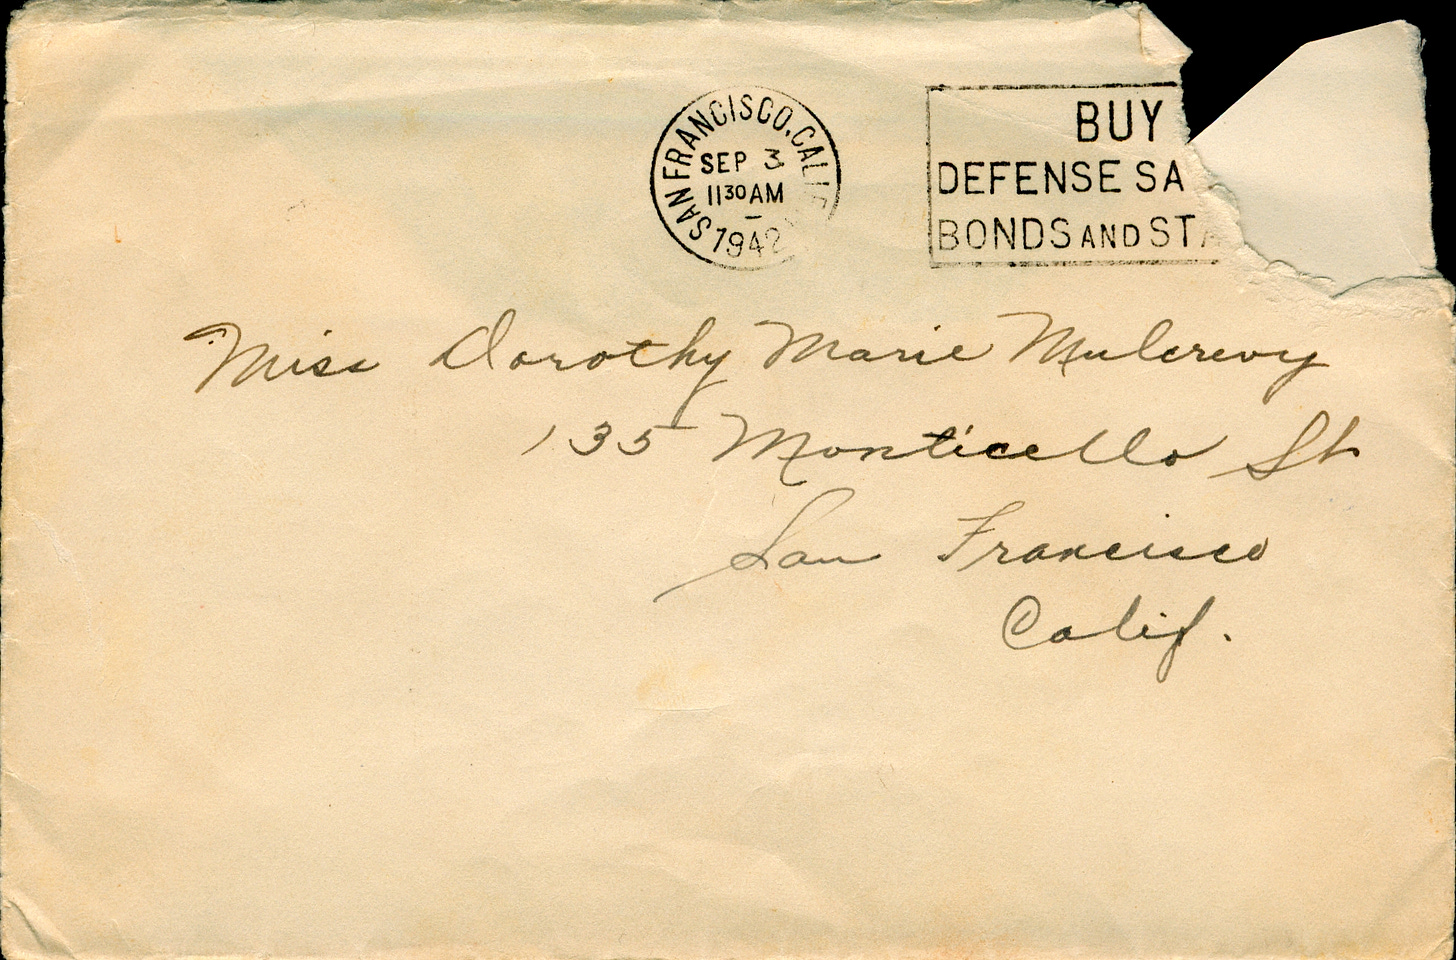 SAN FRANCISCO, CALIF
SEP 3
11 30 AM
1942
BUY
DEFENSE SA
BONDS AND STA
Miss Dorothy Marie Mulcrevy
135 Monticello St
San Francisco
Calif.